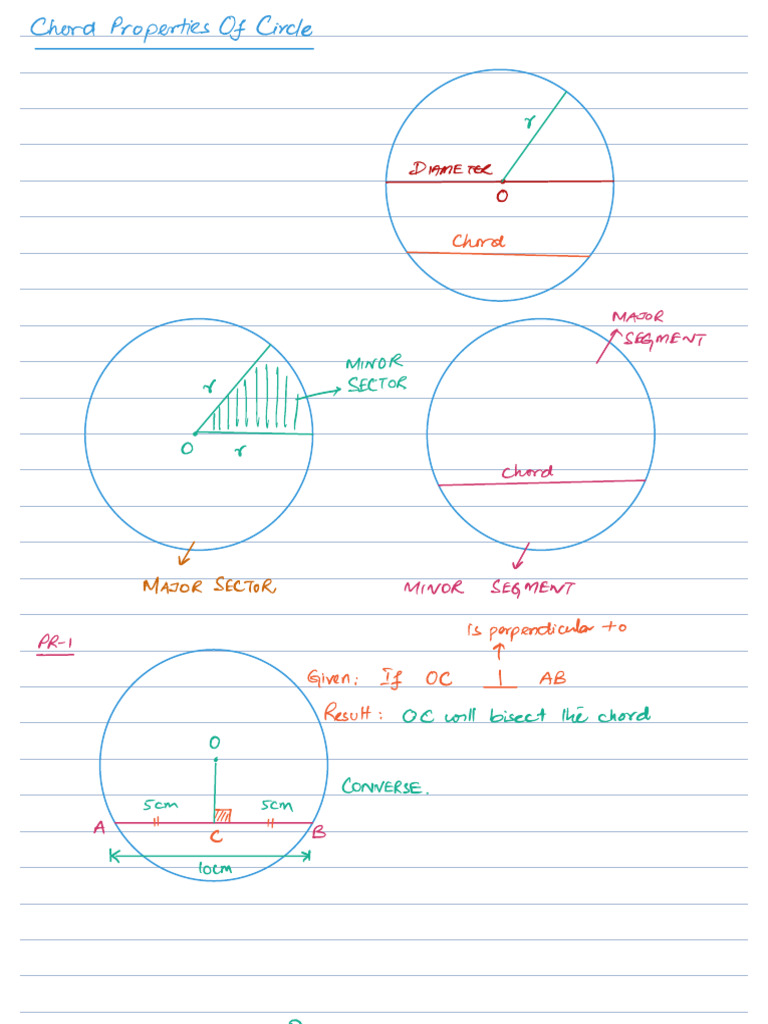 Chord Properties Of Circle
r
DIAMETER
O
Chord
MAJOR
SEGMENT
MINOR
SECTOR
r
O
r
chord
MAJOR SECTOR
MINOR SEGMENT
Is perpendicular to
PR-1
Given: If OC ⊥ AB
Result: OC will bisect the chord
O
CONVERSE.
5cm 5cm
A B
C
10cm